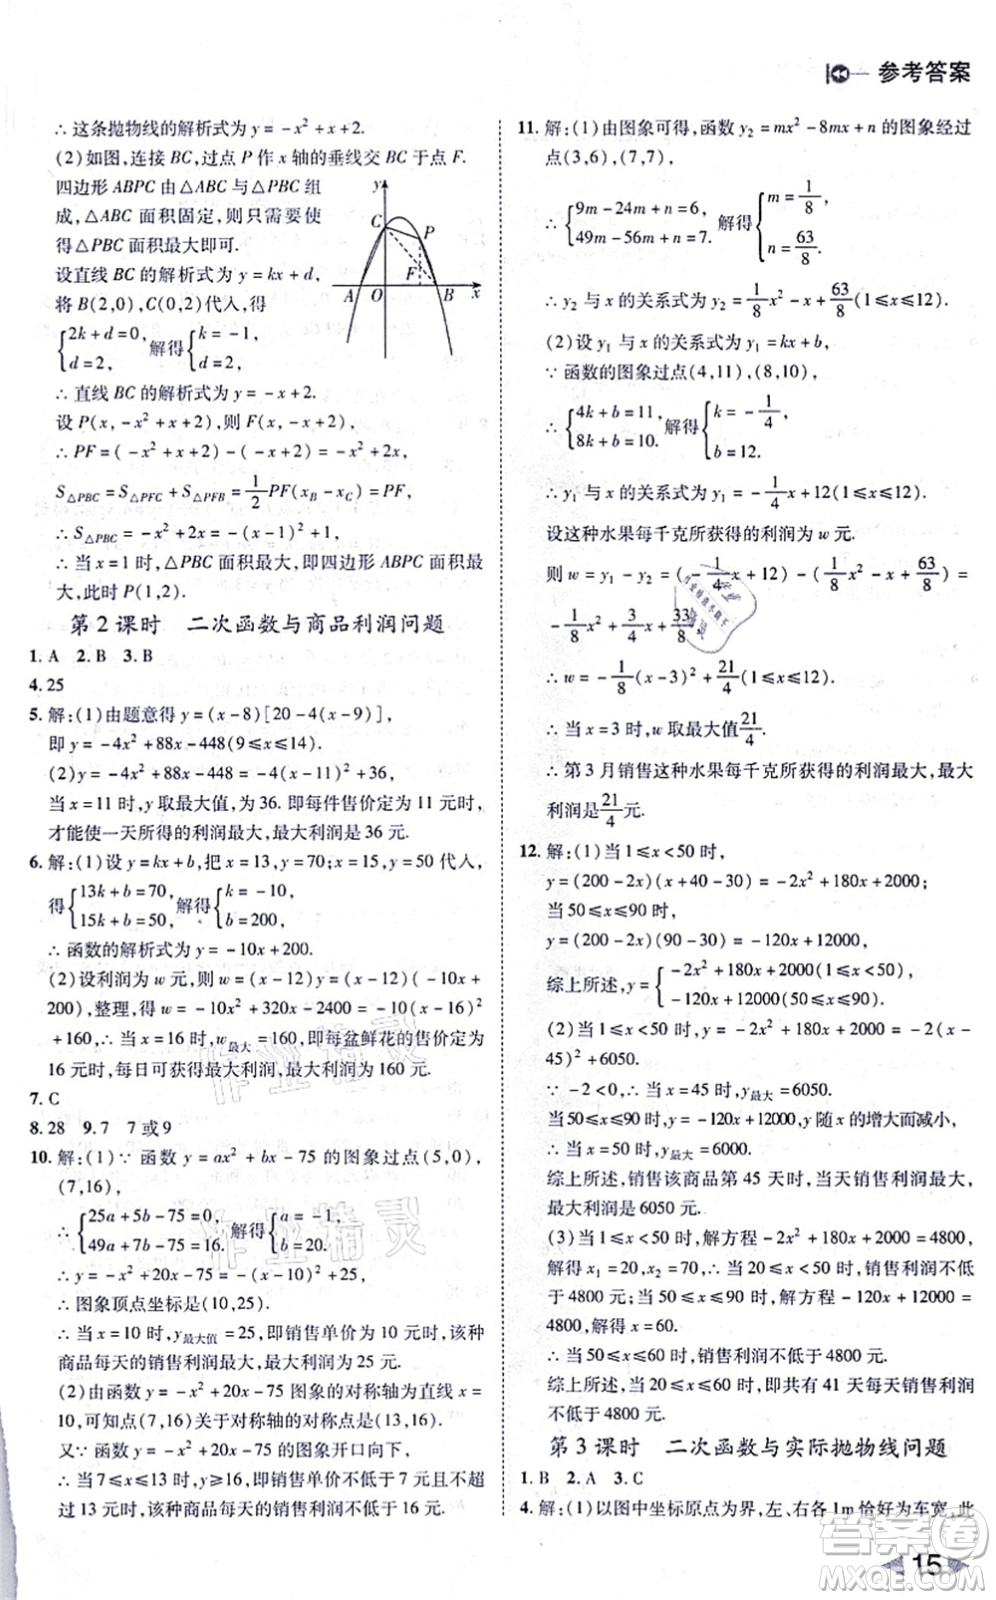 参考答案
∴ 这条抛物线的解析式为 y = -x² + x + 2.
(2)如图,连接 BC,过点 P 作 x 轴的垂线交 BC 于点 F.
四边形 ABPC 由 △ABC 与 △PBC 组
成,△ABC 面积固定,则只需要使
得 △PBC 面积最大即可.
设直线 BC 的解析式为 y = kx + d,
将 B(2,0),C(0,2)代入,得
{2k + d = 0, d = 2, 解得 {k = -1, d = 2,
∴ 直线 BC 的解析式为 y = -x + 2.
y C P F A O B x
设 P(x, -x² + x + 2),则 F(x, -x + 2),
∴ PF = (-x² + x + 2) - (-x + 2) = -x² + 2x.
S△PBC = S△PFC + S△PFB = 1/2 PF(x_B - x_C) = PF,
∴ S△PBC = -x² + 2x = -(x - 1)² + 1,
∴ 当 x = 1 时,△PBC 面积最大,即四边形 ABPC 面积最
大,此时 P(1,2).
第 2 课时 二次函数与商品利润问题
1. A 2. B 3. B
4. 25
5. 解:(1)由题意得 y = (x - 8)[20 - 4(x - 9)],
即 y = -4x² + 88x - 448(9 ≤ x ≤ 14).
(2)y = -4x² + 88x - 448 = -4(x - 11)² + 36,
当 x = 11 时,y 取最大值,为 36. 即每件售价定为 11 元时,
才能使一天所得的利润最大,最大利润是 36 元.
6. 解:(1)设 y = kx + b,把 x = 13,y = 70;x = 15,y = 50 代入,
得 {13k + b = 70, 15k + b = 50, 解得 {k = -10, b = 200,
∴ 函数的解析式为 y = -10x + 200.
(2)设利润为 w 元,则 w = (x - 12)y = (x - 12)(-10x +
200),整理,得 w = -10x² + 320x - 2400 = -10(x - 16)²
+ 160,∴ 当 x = 16 时,w最大 = 160,即每盆鲜花的售价定为
16 元时,每天能够获得最大利润,最大利润为 160 元.
7. C
8. 28 9. 7 7 或 9
10. 解:(1)∵ 函数 y = ax² + bx - 75 的图象过点(5,0),
(7,16),
∴ {25a + 5b - 75 = 0, 49a + 7b - 75 = 16. 解得 {a = -1, b = 20.
∴ y = -x² + 20x - 75 = -(x - 10)² + 25,
∴ 图象顶点坐标是(10,25).
∴ 当 x = 10 时,y最大值 = 25,即销售单价为 10 元时,该种
商品每天的销售利润最大,最大利润为 25 元.
(2)由函数 y = -x² + 20x - 75 图象的对称轴为直线 x =
10,可知点(7,16)关于对称轴的对称点是(13,16).
又∵ 函数 y = -x² + 20x - 75 图象开口向下,
∴ 当 7 ≤ x ≤ 13 时,y ≥ 16,即销售单价不少于 7 元且不超
过 13 元时,该种商品每天的销售利润不低于 16 元.
11. 解:(1)由图象可得,函数 y₂ = mx² - 8mx + n 的图象经过
点(3,6),(7,7),
∴ {9m - 24m + n = 6, 49m - 56m + n = 7. 解得 {m = 1/8, n = 63/8.
∴ y₂ 与 x 的关系式为 y₂ = 1/8 x² - x + 63/8 (1 ≤ x ≤ 12).
(2)设 y₁ 与 x 的关系式为 y₁ = kx + b,
∵ 函数的图象过点(4,11),(8,10),
∴ {4k + b = 11, 8k + b = 10. 解得 {k = -1/4, b = 12.
∴ y₁ 与 x 的关系式为 y₁ = -1/4 x + 12(1 ≤ x ≤ 12).
设这种水果每千克所获得的利润为 w 元.
则 w = y₁ - y₂ = (-1/4 x + 12) - (1/8 x² - x + 63/8) =
-1/8 x² + 3/4 x + 33/8,
∴ w = -1/8 (x - 3)² + 21/4 (1 ≤ x ≤ 12),
∴ 当 x = 3 时,w 取最大值 21/4.
∴ 第 3 月销售这种水果每千克所获得的利润最大,最大
利润是 21/4 元.
12. 解:(1)当 1 ≤ x < 50 时,
y = (200 - 2x)(x + 40 - 30) = -2x² + 180x + 2000;
当 50 ≤ x ≤ 90 时,
y = (200 - 2x)(90 - 30) = -120x + 12000,
综上所述,y = {-2x² + 180x + 2000(1 ≤ x < 50), -120x + 12000(50 ≤ x ≤ 90).
(2)当 1 ≤ x < 50 时,y = -2x² + 180x + 2000 = -2(x -
45)² + 6050.
∵ -2 < 0,∴ 当 x = 45 时,y最大 = 6050.
当 50 ≤ x ≤ 90 时,y = -120x + 12000,y 随 x 的增大而减小,
∴ 当 x = 50 时,y最大 = 6000.
综上所述,销售该商品第 45 天时,当天销售利润最大,
最大利润是 6050 元.
(3)当 1 ≤ x < 50 时,解方程 -2x² + 180x + 2000 = 4800,
解得 x₁ = 20,x₂ = 70,∴ 当 20 ≤ x < 50 时,销售利润不低
于 4800 元;当 50 ≤ x ≤ 90 时,解方程 -120x + 12000 =
4800,解得 x = 60.
∴ 当 50 ≤ x ≤ 60 时,销售利润不低于 4800 元.
综上所述,当 20 ≤ x ≤ 60 时,即共有 41 天每天销售利润
不低于 4800 元.
第 3 课时 二次函数与实际抛物线问题
1. B 2. A 3. C
4. 解:(1)以图中坐标原点为界,左、右各 1m 恰好为车宽,此
15
作业精灵
作业精灵
答案圈
MXQE.COM